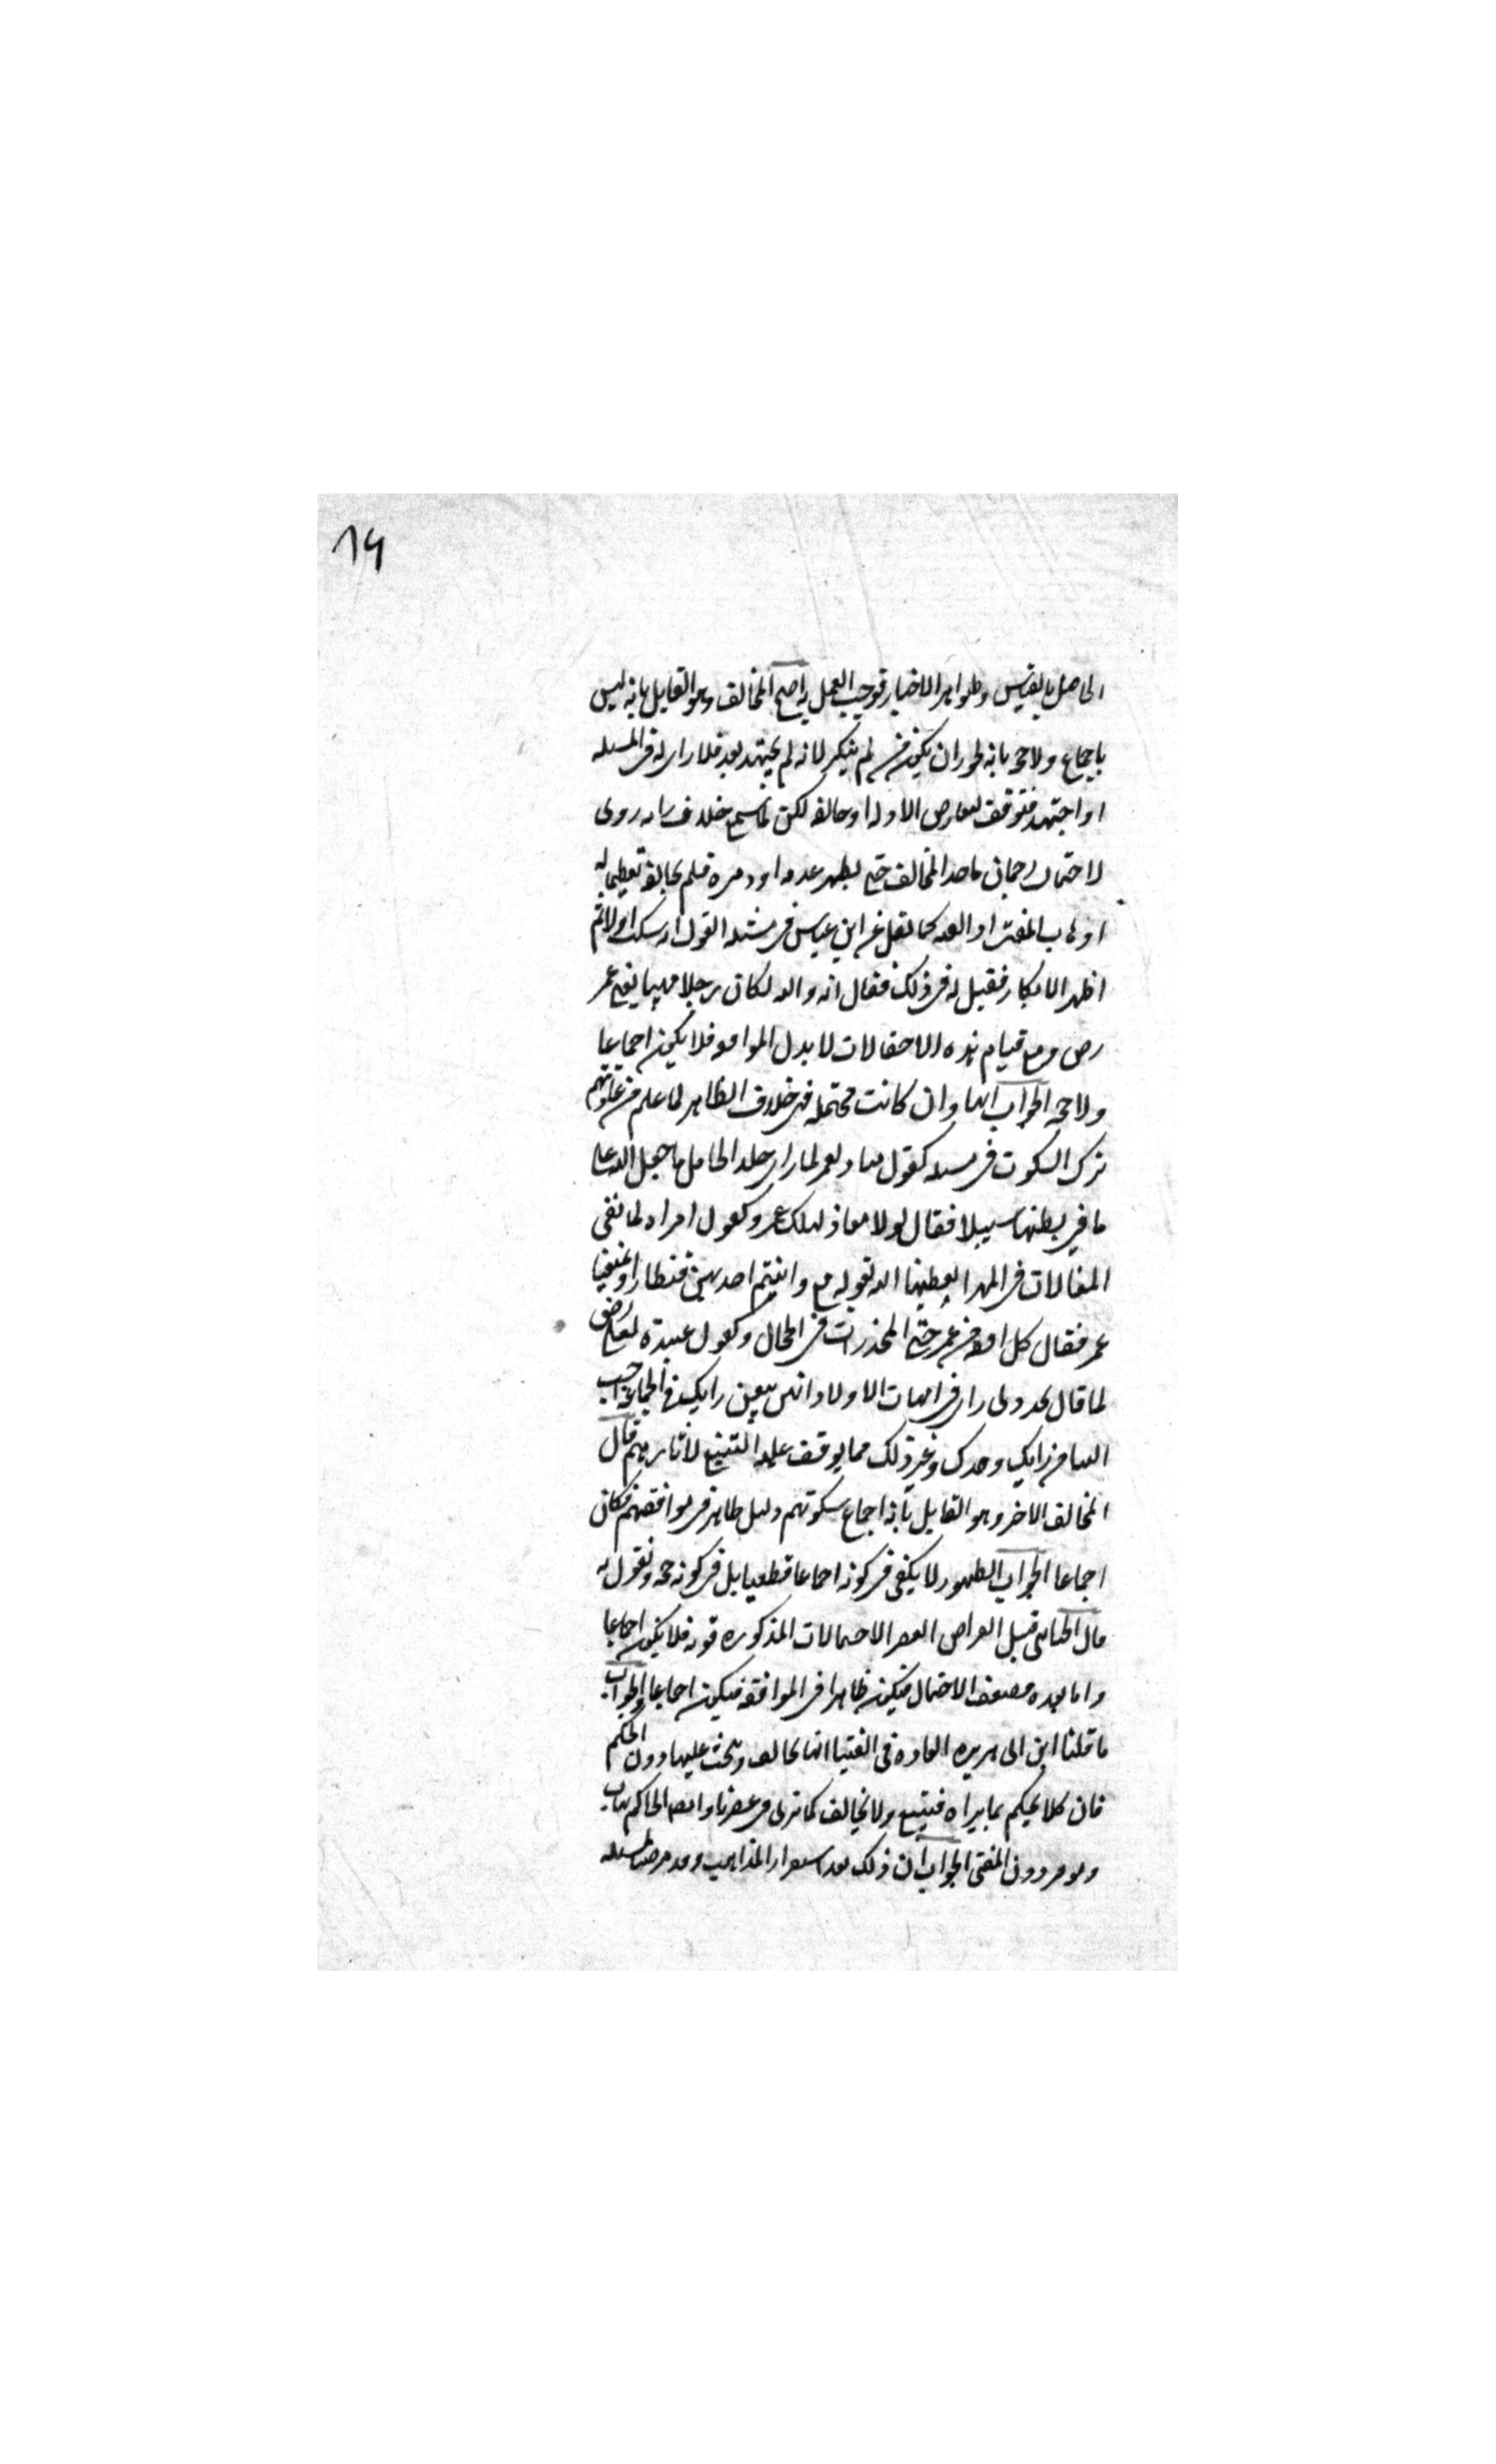 ١٩
الحاصل بالقياس وظواهر الاخبار فوجب العمل به احتج المخالف وهو القايل بانه ليس
باجماع ولا حجه بانه يجوز ان يكون من لم ينكر لانه لم يجتهد بعد فلا راى له فى المسله
او اجتهد فتوقف لتعارض الادله او خالفه لكن لما سمع خلاف رايه روى
لاحتمال رجحان ماخذ المخالف حتى يظهر عدمه او وقره فلم يخالفه تعظيما له
او هاب المفتى او الفتنه كما نقل عن ابن عباس فى مسله العول انه سكت اولا ثم
اظهر الانكار فقيل له فى ذلك فقال انه والله لكان رجلا مهيبا يعنى عمر
رضى ومع قيام هذه الاحتمالات لا يدل الموافقه فلا يكون اجماعا
ولا حجه الجواب انها وان كانت محتمله فهى خلاف الظاهر لما علم من عاداتهم
ترك السكوت فى مثله كقول معاذ لعمر لما راى جلد الحامل ما جعل الله على
ما فى بطنها سبيلا فقال لولا معاذ لهلك عمر وكقول امراه لما نفى
المغالات فى المهر ايعطينا الله بقوله تع واتيتم احديهن قنطارا ويمنعنا
عمر فقال كل افقه من عمر حتى المخدرات فى الحجال وكقول عبيده لعلى رضى
لما قال تجدد لى راى فى امهات الاولاد انهن يبعن رايك فى الجماعه احب
الينا من رايك وحدك وغير ذلك مما يوقف عليه التتبع لاثارهم قال
المخالف الاخر وهو القايل بانه اجماع سكوتهم دليل ظاهر فى موافقتهم فكان
اجماعا الجواب الظهور لا يكفى فى كونه اجماعا قطعيا بل فى كونه حجه ونقول به
قال الجبائى قبل انقراض العصر الاحتمالات المذكوره قويه فلا يكون اجماعا
واما بعده فضعف الاحتمال فيكون ظاهرا فى الموافقه فيكون اجماعا والجواب
ما قلنا ابن ابى هريره العاده فى الفتيا انها تخالف ويبحث عليها دون الحكم
فان كلا يحكم بما يراه فيتبع ولا يخالف كما ترى فى عصرنا وايضا الحاكم يهاب
ويوقر دون المفتى الجواب ان ذلك بعد استقرار المذاهب وقد فرضنا المسله